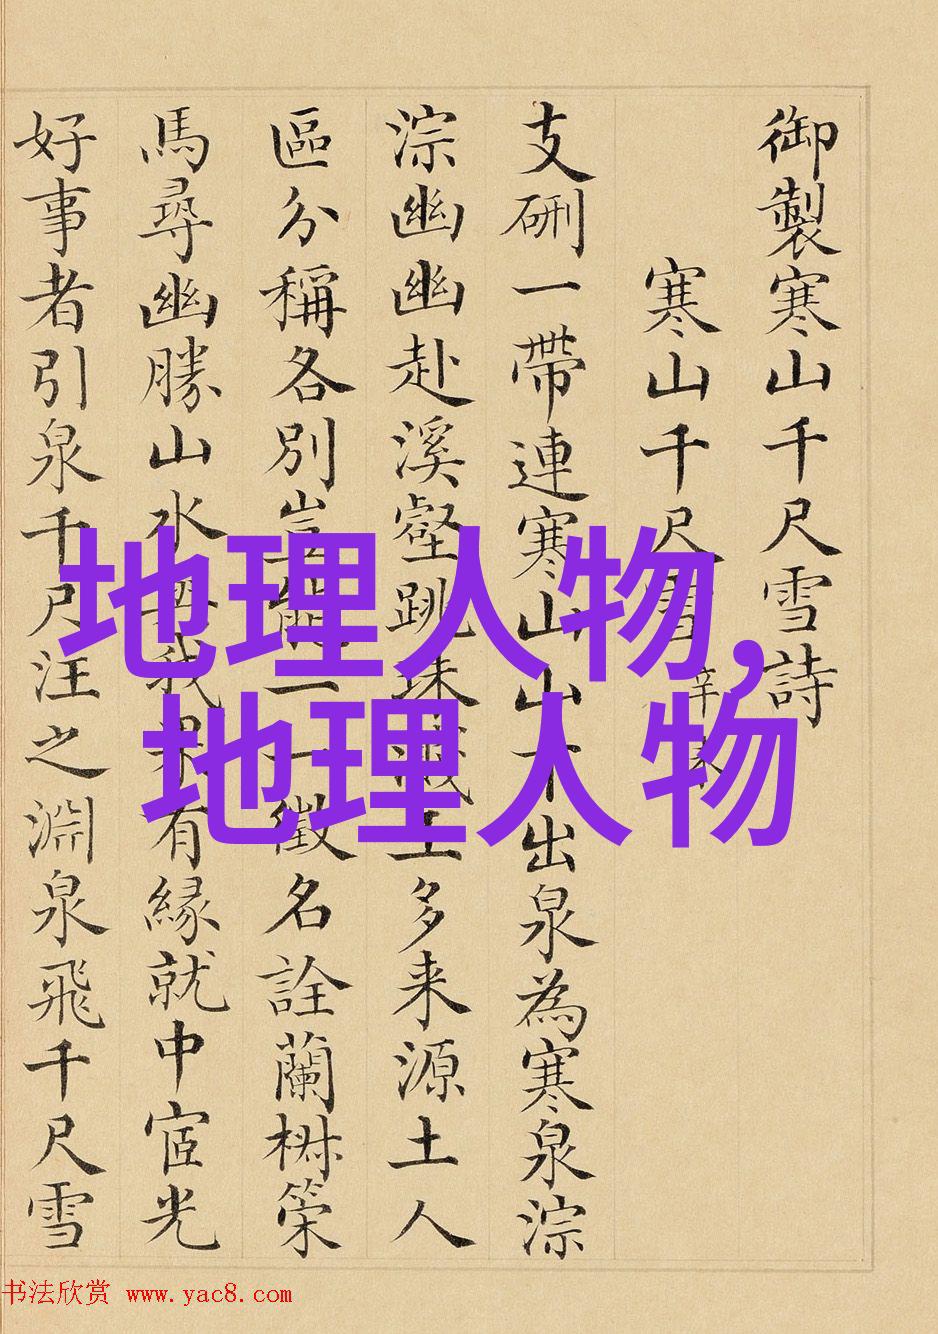 御製寒山千尺雪詩
寒山千尺雪 辛未
支硎一帶連寒山山下出泉為寒泉淙
淙幽幽赴溪壑跳珠濺玉多来源土人
區分稱各別豈能一一徵名詮蘭策
馬尋幽勝山水與我果有緣就中宧光
好事者引泉千尺汪之淵泉飛千尺雪
地理人物,
地理人物
书法欣赏 www.yac8.com